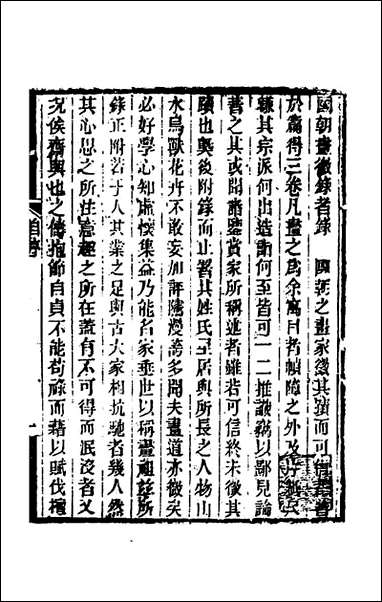 國朝畫徵錄者錄　國朝之畫家徵其蹟而可
於篇得三卷凡畫之爲余寓目者幀障之外及
縑其宗派何出造詣何至皆可一二推識竊以鄙見論
著之其或聞諸鑒賞家所稱述者雖若可信終未徵其
蹟也槩後附錄而止署其姓氏里居與所長之人物山
水鳥獸花卉不敢妄加評隲漫誇多聞夫畫道亦微矣
必好學心知虛懷集益乃能名家垂世以稱畫祖茲所
錄正附若干人其業之足與古大家相抗馳者幾人然
其心思之所注意趣之所在蓋有不可得而泯沒者又
況侯齋輿也之儔抱節自貞不能苟祿而藉以賦伐檀
自序
一